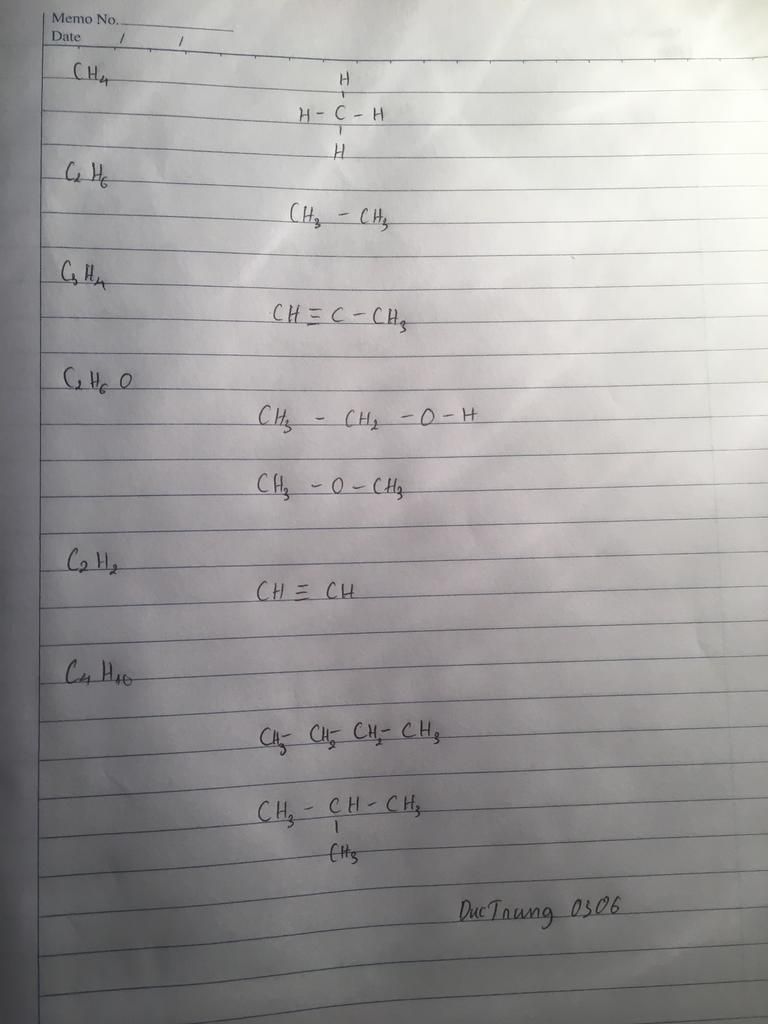 Memo No.
Date / /
CH₄
H
H - C - H
H
C₂ H₆
CH₃ - CH₃
C₃ H₄
CH ≡ C - CH₃
C₂ H₆ O
CH₃ - CH₂ - O - H
CH₃ - O - CH₃
C₂ H₂
CH ≡ CH
C₄ H₁₀
CH₃- CH₂- CH₂- CH₃
CH₃ - CH - CH₃
CH₃
DucTrung 0306